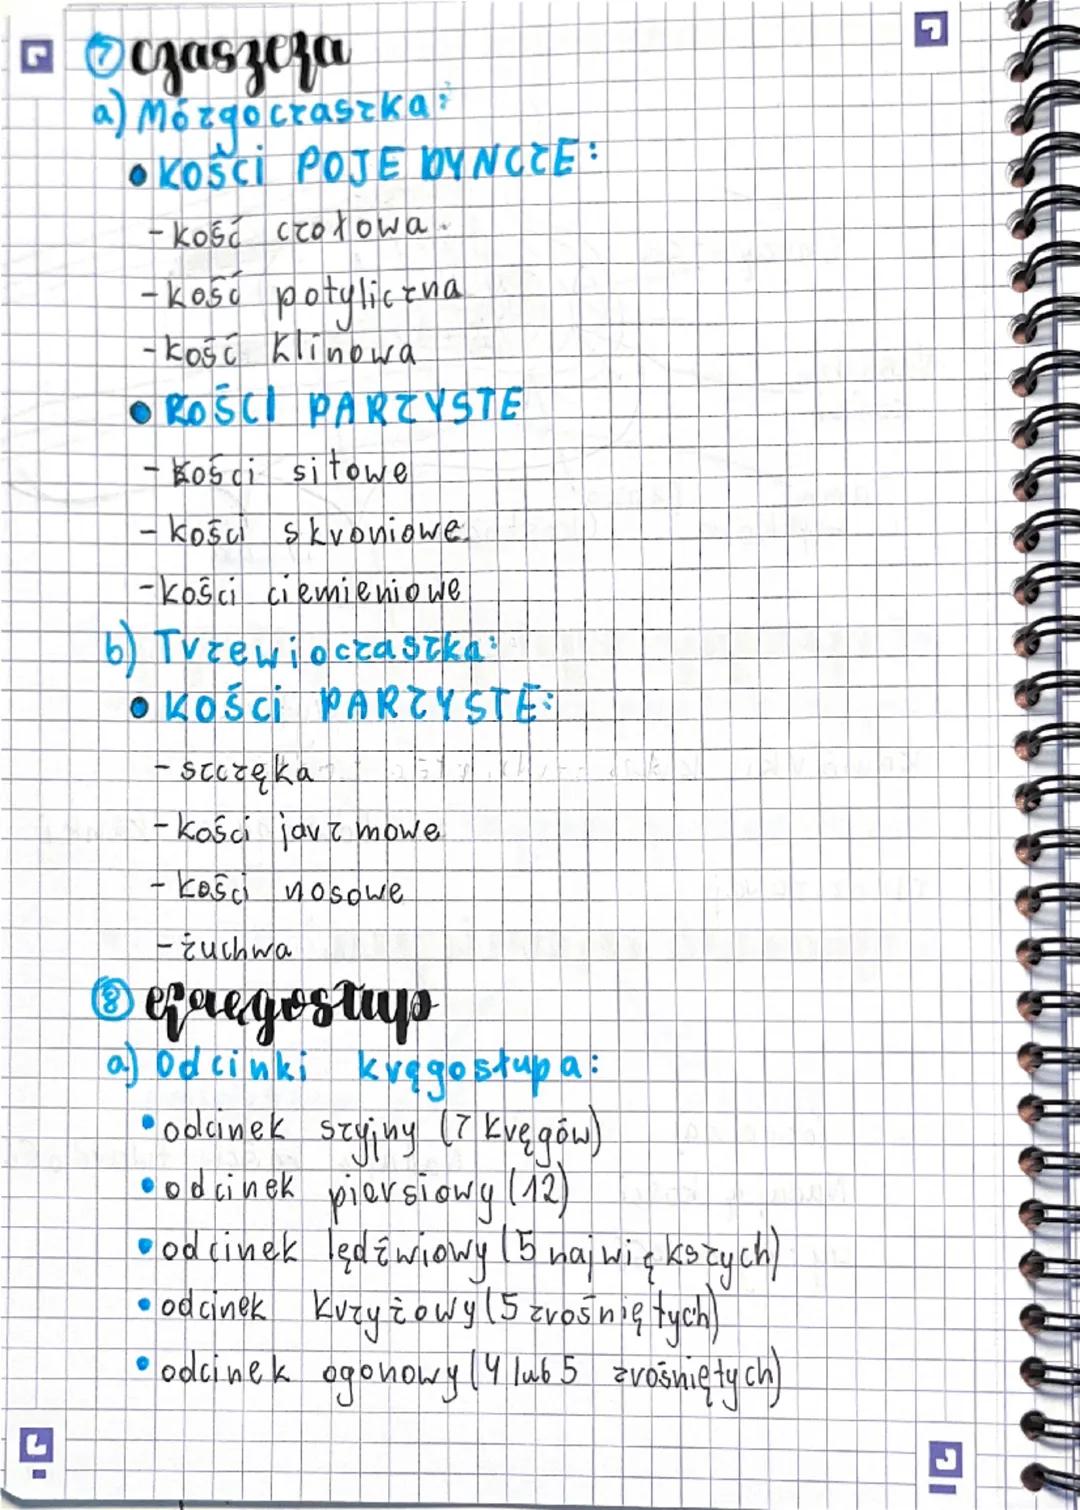 ⑦ czaszka
a) Mózgoczaszka:
• KOŚCi POJEDYNCZE:
- kość czołowa
- kość potyliczna
- kość klinowa
• KOŚCI PARZYSTE
- kości sitowe
- kości skroniowe
- kości ciemieniowe
b) Trzewioczaszka:
• KOŚCi PARZYSTE:
- szczęka
- kości jarzmowe
- kości nosowe
- żuchwa
⑧ kręgosłup
a) Odcinki kręgosłupa:
• odcinek szyjny (7 kręgów)
• odcinek piersiowy (12)
• odcinek lędźwiowy (5 największych)
• odcinek krzyżowy (5 zrośniętych)
• odcinek ogonowy (4 lub 5 zrośniętych)